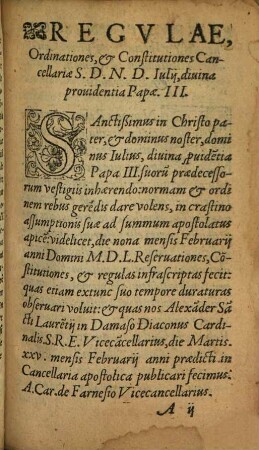 REGVLAE,
Ordinationes, & Constitutiones Can-
cellariæ S. D. N. D. Iulij, diuina
prouidentia Papæ. III.
SAnctissimus in Christo pa-
ter, & dominus noster, domi
nus Iulius, diuina ꝓuidẽtia
Papa III. suorũ prædecesso-
rum vestigiis inhærendo: normam & ordi
nem rebus gerẽdis dare volens, in crastino
assumptionis suæ ad summum apostolatus
apicẽ: videlicet, die nona mensis Februarij
anni Domini M.D.L. Reseruationes, Cõ-
stitutiones, & regulas infrascriptas fecit:
quas etiam extunc suo tempore duraturas
obseruari voluit: & quas nos Alexãder Sã-
cti Laurẽtij in Damaso Diaconus Cardi-
nalis. S.R.E. Vicecãcellarius, die Martis.
xxv. mensis Februarij anni prædicti in
Cancellaria apostolica publicari fecimus.
A. Car. de Farnesio Vicecancellarius.
A ij